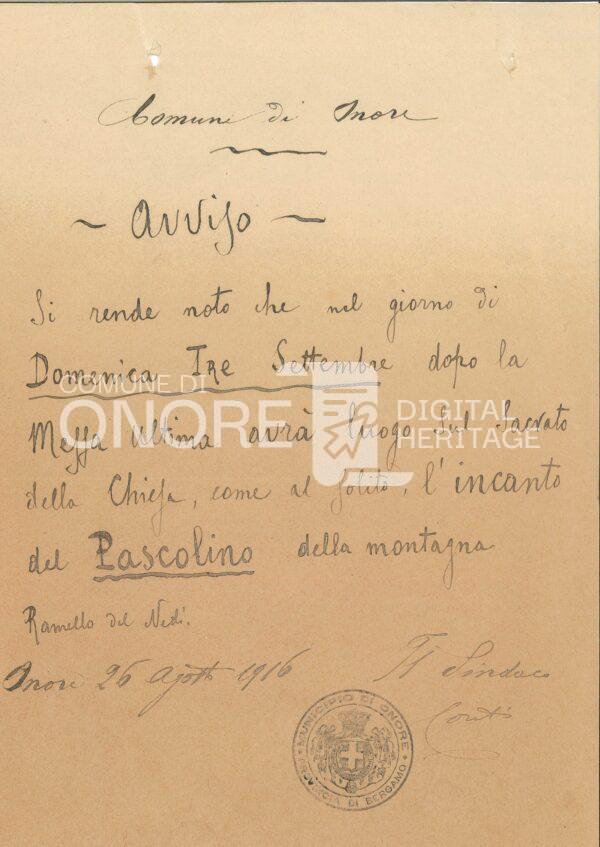 Comune di Onore
~ Avviso ~
Si rende noto che nel giorno di
Domenica Tre Settembre dopo la
Messa Ultima avrà luogo sul Sacrato
della Chiesa, come al solito, l'incanto
del Pascolino della montagna
Ramello del Nedi.
Onore 26 Agosto 1916
Il Sindaco
Conti
MUNICIPIO DI ONORE
PROVINCIA DI BERGAMO
COMUNE DI
ONORE
DIGITAL
HERITAGE